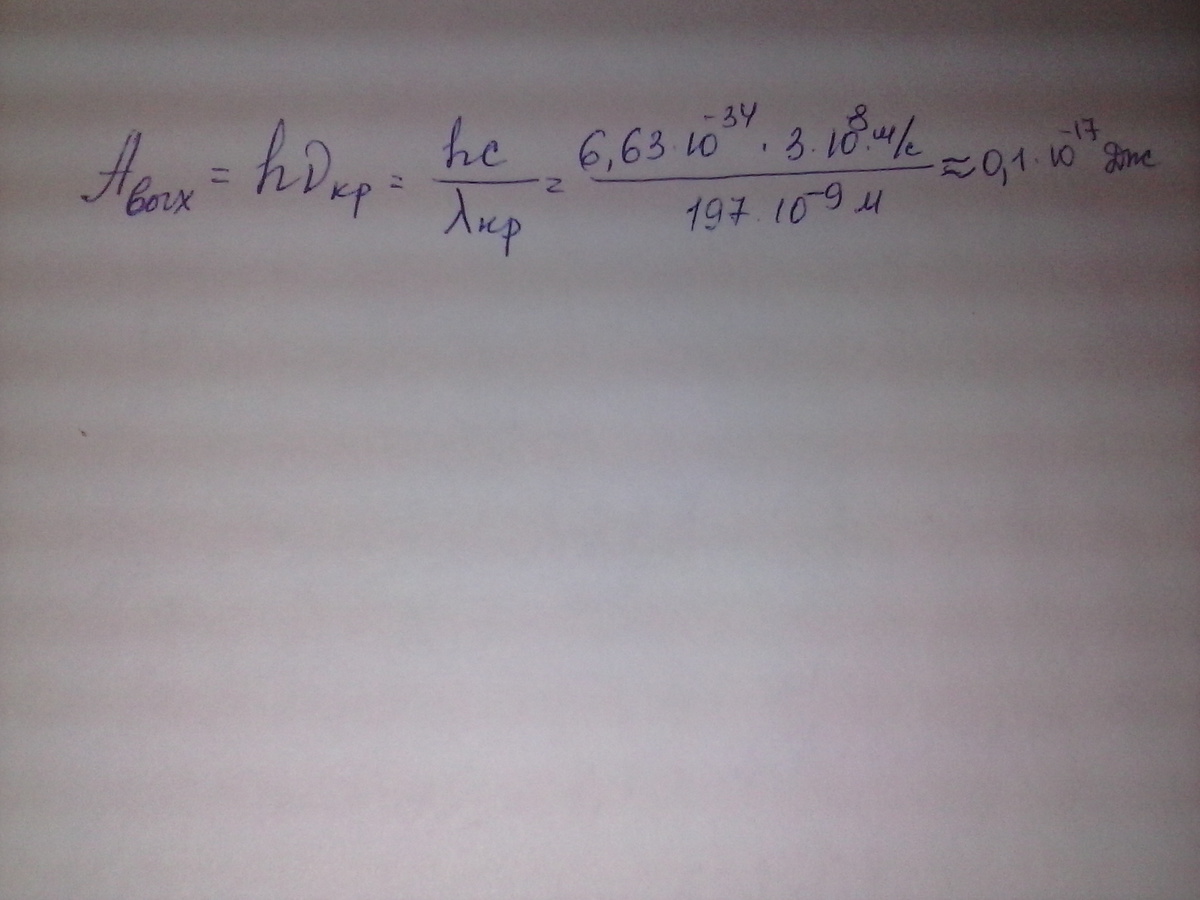 Aвых = hνкр = hc/λкр = 6,63·10⁻³⁴ · 3·10⁸ м/с / 197·10⁻⁹ м ≈ 0,1·10⁻¹⁷ Дж